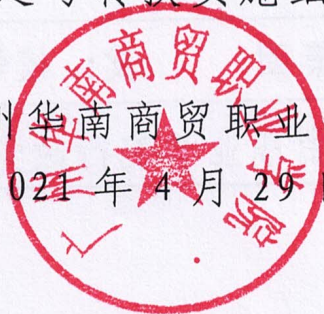 州华南商贸职业
2021年4月29
广州华南商贸职业学院